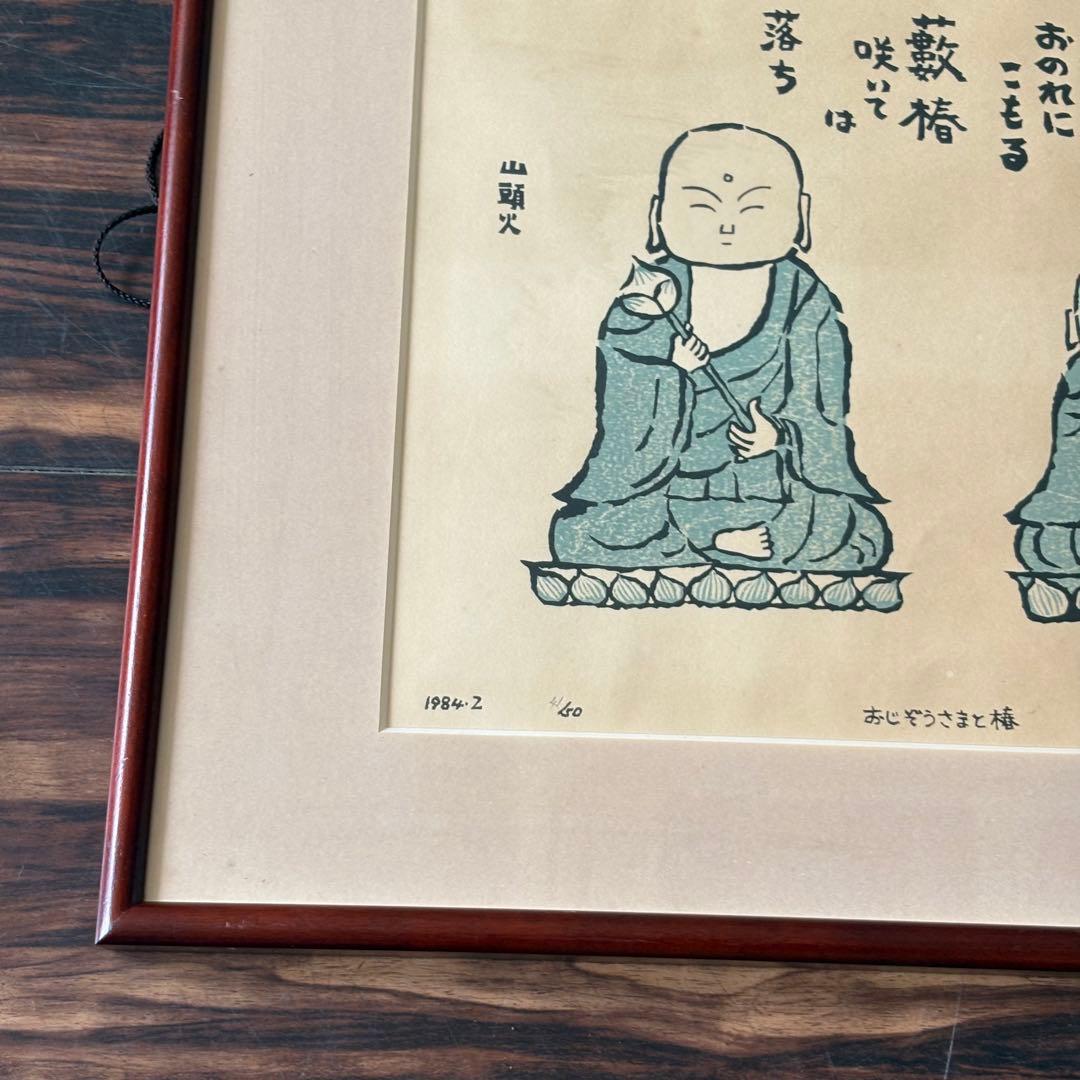 おのれに
こもる
藪椿
咲いて
は
落ち
山頭火
1984.2
41/50
おじぞうさまと椿